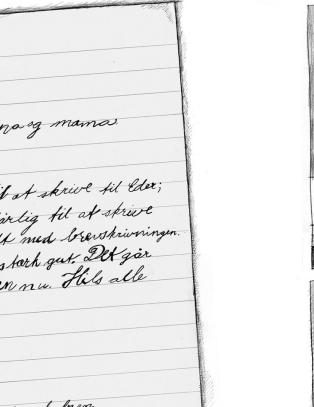 og mama
at skrive til Eder;
til at skrive
med brevskrivningen.
stærk gut. Det går
nu. Hils alle